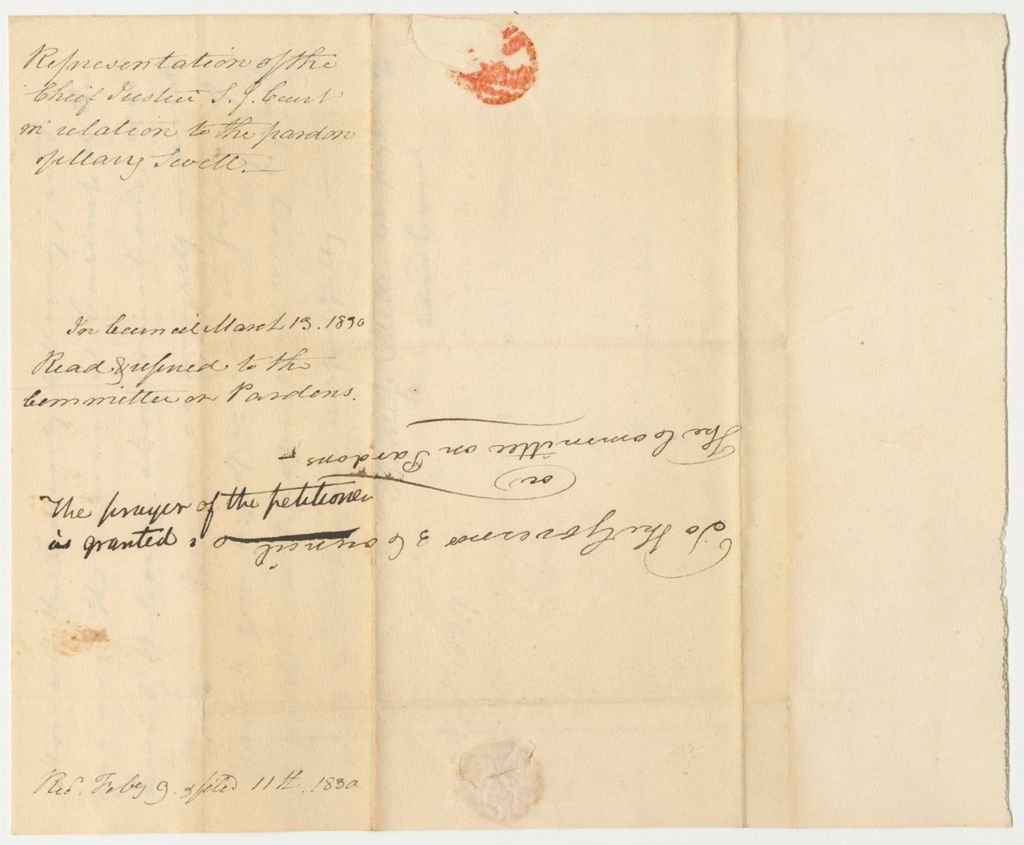 Representation of the
Chief Justice S. J. Court
in relation to the pardon
of Mary
In Council March 13. 1830
Read & referred to the
Committee on Pardons.
The prayer of the petitioner
is granted
Recd. Feby 9. & filed 11th. 1830
To the Governor & Council
or
The Committee on Pardons